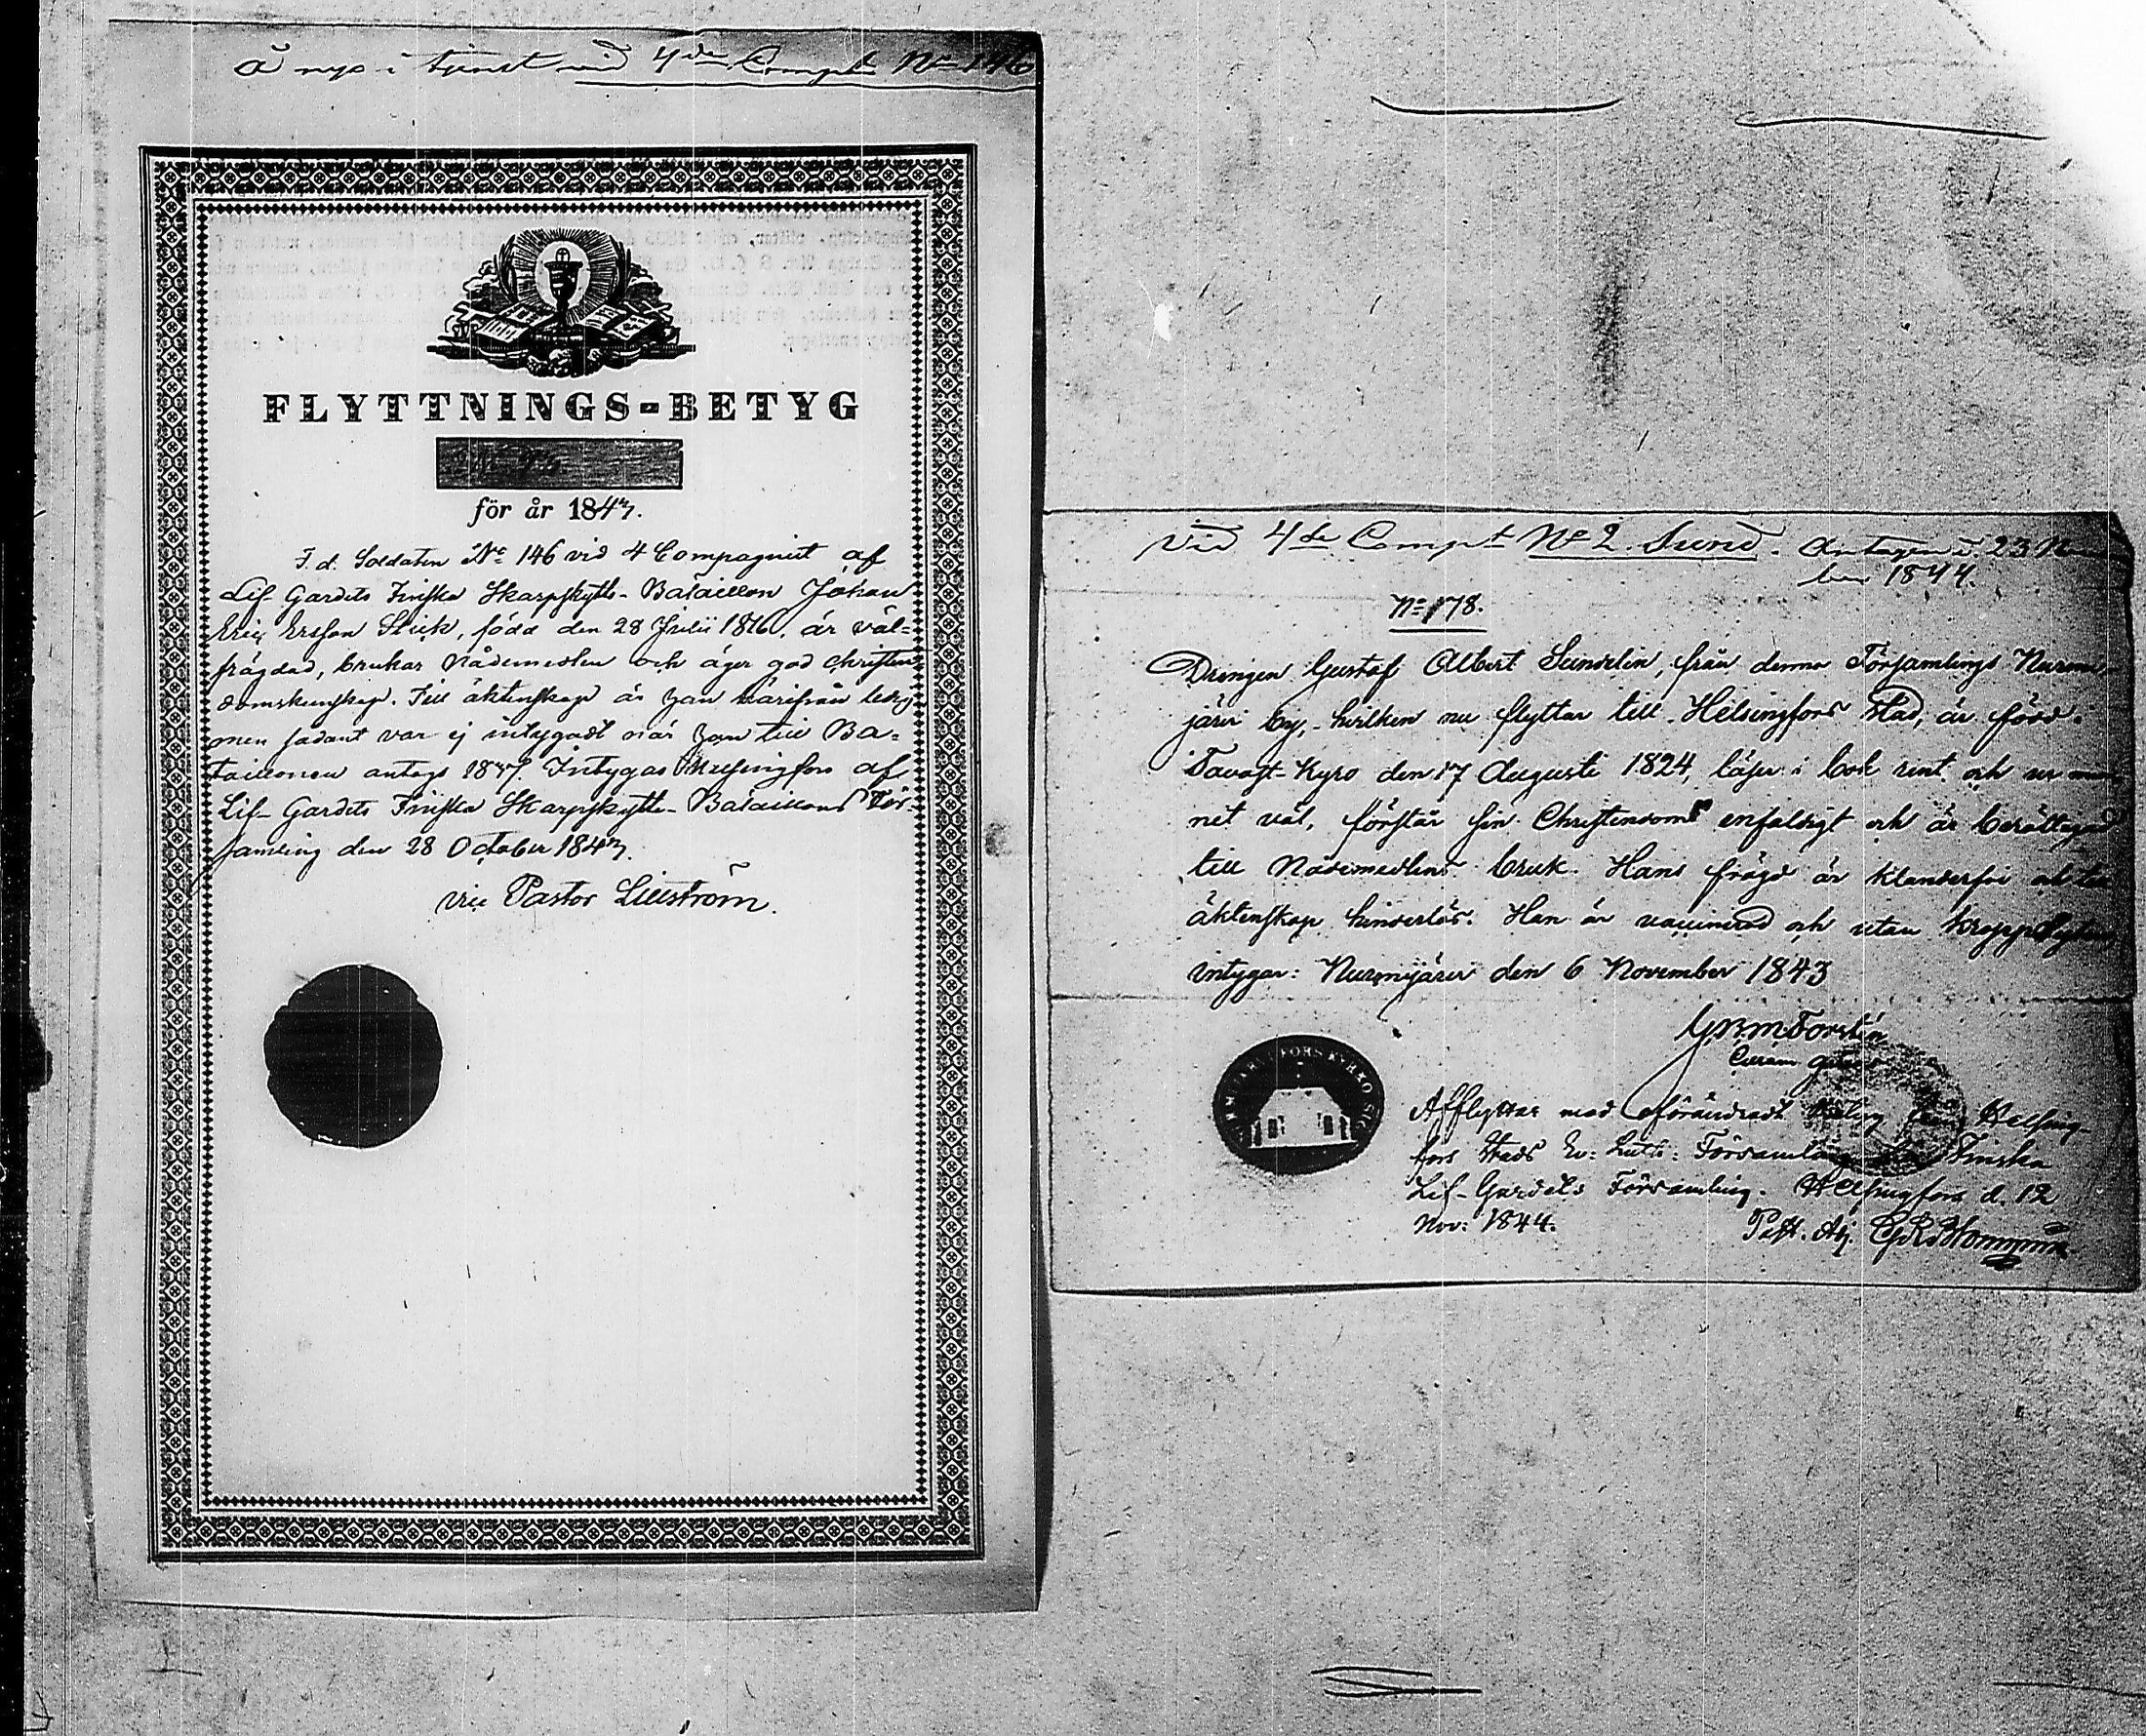 å nyo i tjenst vid 4de Compt No 146
FLYTTNINGS-BETYG
för år 1847.
F. d. Soldaten No 146 vid 4 Compagniet af
Lif-Gardets Finska Skarpskytte-Bataillon Johan
Eric Ersson Stick, född den 28 Julii 1816, är väl-
frägdad, brukar Nådemedlen och äger god Christen-
domskunskap. Till äktenskap är han härifrån ledig
men sådant var ej intygadt när han till Ba-
taillonen antogs 1837. Intygas Helsingfors af
Lif-Gardets Finska Skarpskytte-Bataillons För-
samling den 28 October 1847.
vice Pastor Lillström.
Vid 4de Compt No 2. Sund. Antagen d. 23 Novem
ber 1844.
No 178.
Drengen Gustaf Albert Sundelin, från denna Församlings Nurmi-
järvi by, hvilken nu flyttar till Helsingfors Stad, är född i
Tavast-Kyro den 17 Augusti 1824, läser i bok rent och ur min
net väl, förstår sin Christendom enfaldigt och är berättigad
till Nådemedlens bruk. Hans frägd är klanderfri och till
äktenskap hinderlös. Han är vaccinerad och utan kroppslyten
intygar: Nurmijärvi den 6 November 1843
Forstén
KYRKO
Afflyttar med oförändradt betyg från Helsing-
fors Stads Ev: Luth: Församling till Finska
Lif-Gardets Församling. Helsingfors d. 12
Nov: 1844.
Past. Adj.